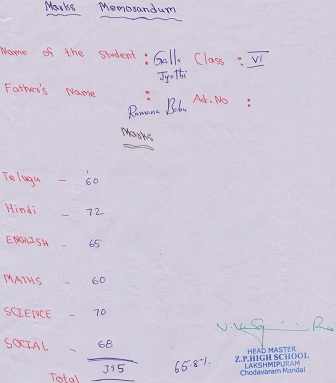 Marks Memosandum
Name of the Student : Galla Class : VI
Jyothi
Father's Name : Ad.No :
Ramana Babu
Marks
Telugu - 60
Hindi - 72
ENGLISH - 65
MATHS - 60
SCIENCE - 70
SOCIAL - 68
Total 395 65.8%
HEAD MASTER
Z.P.HIGH SCHOOL
LAKSHMIPURAM
Chodavaram Mandal